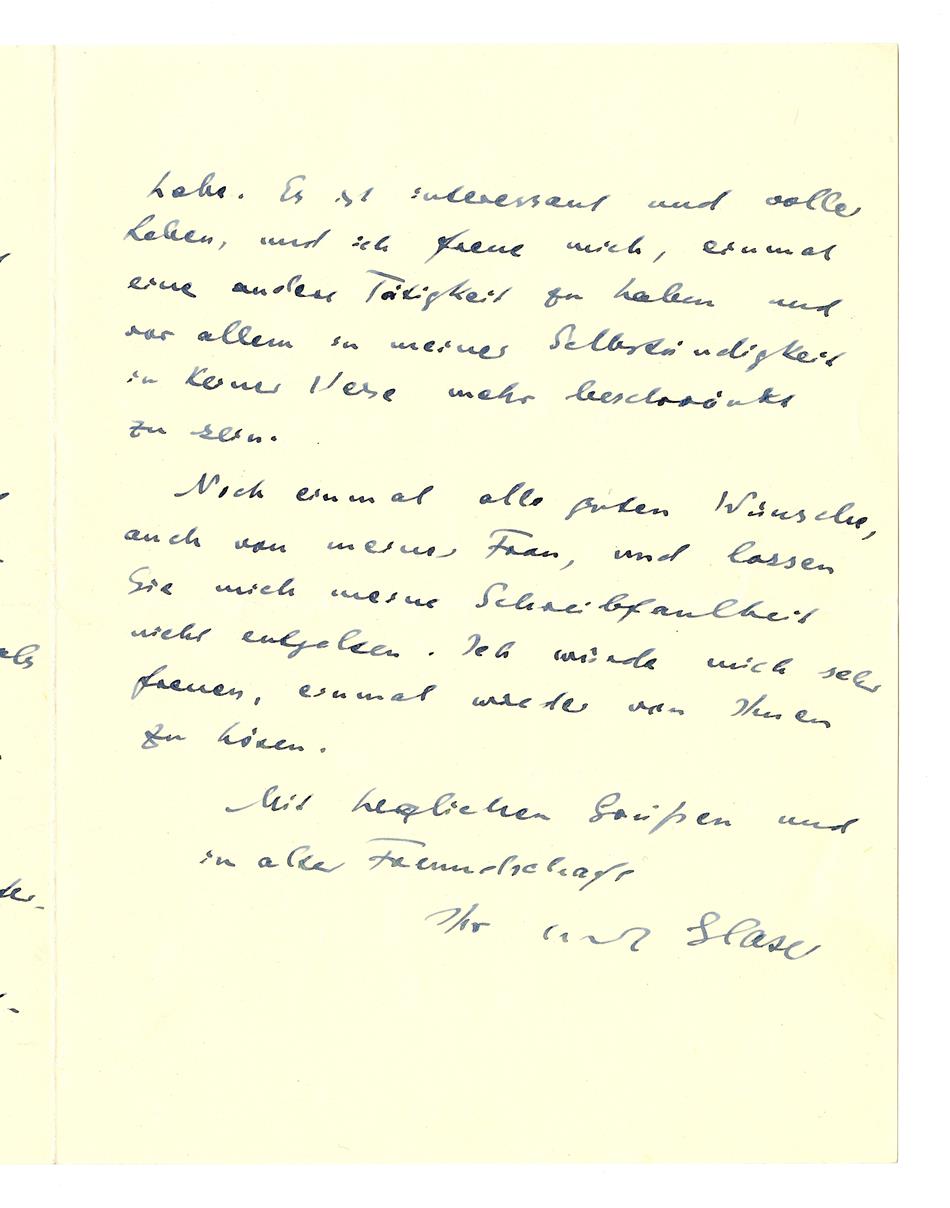 habe. Es ist interessant und voller
Leben, und ich freue mich, einmal
eine andere Tätigkeit zu haben und
vor allem in meiner Selbständigkeit
in keiner Weise mehr beschränkt
zu sein.
Noch einmal alle guten Wünsche,
auch von meiner Frau, und lassen
Sie mich meine Schreibfaulheit
nicht entgelten. Ich würde mich sehr
freuen, einmal wieder von Ihnen
zu hören.
Mit herzlichen Grüßen und
in alter Freundschaft
Ihr Glaser